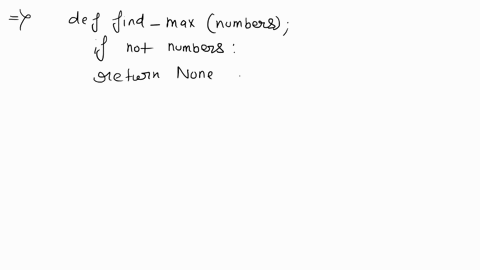 => def find_max (numbers);
if not numbers:
return None